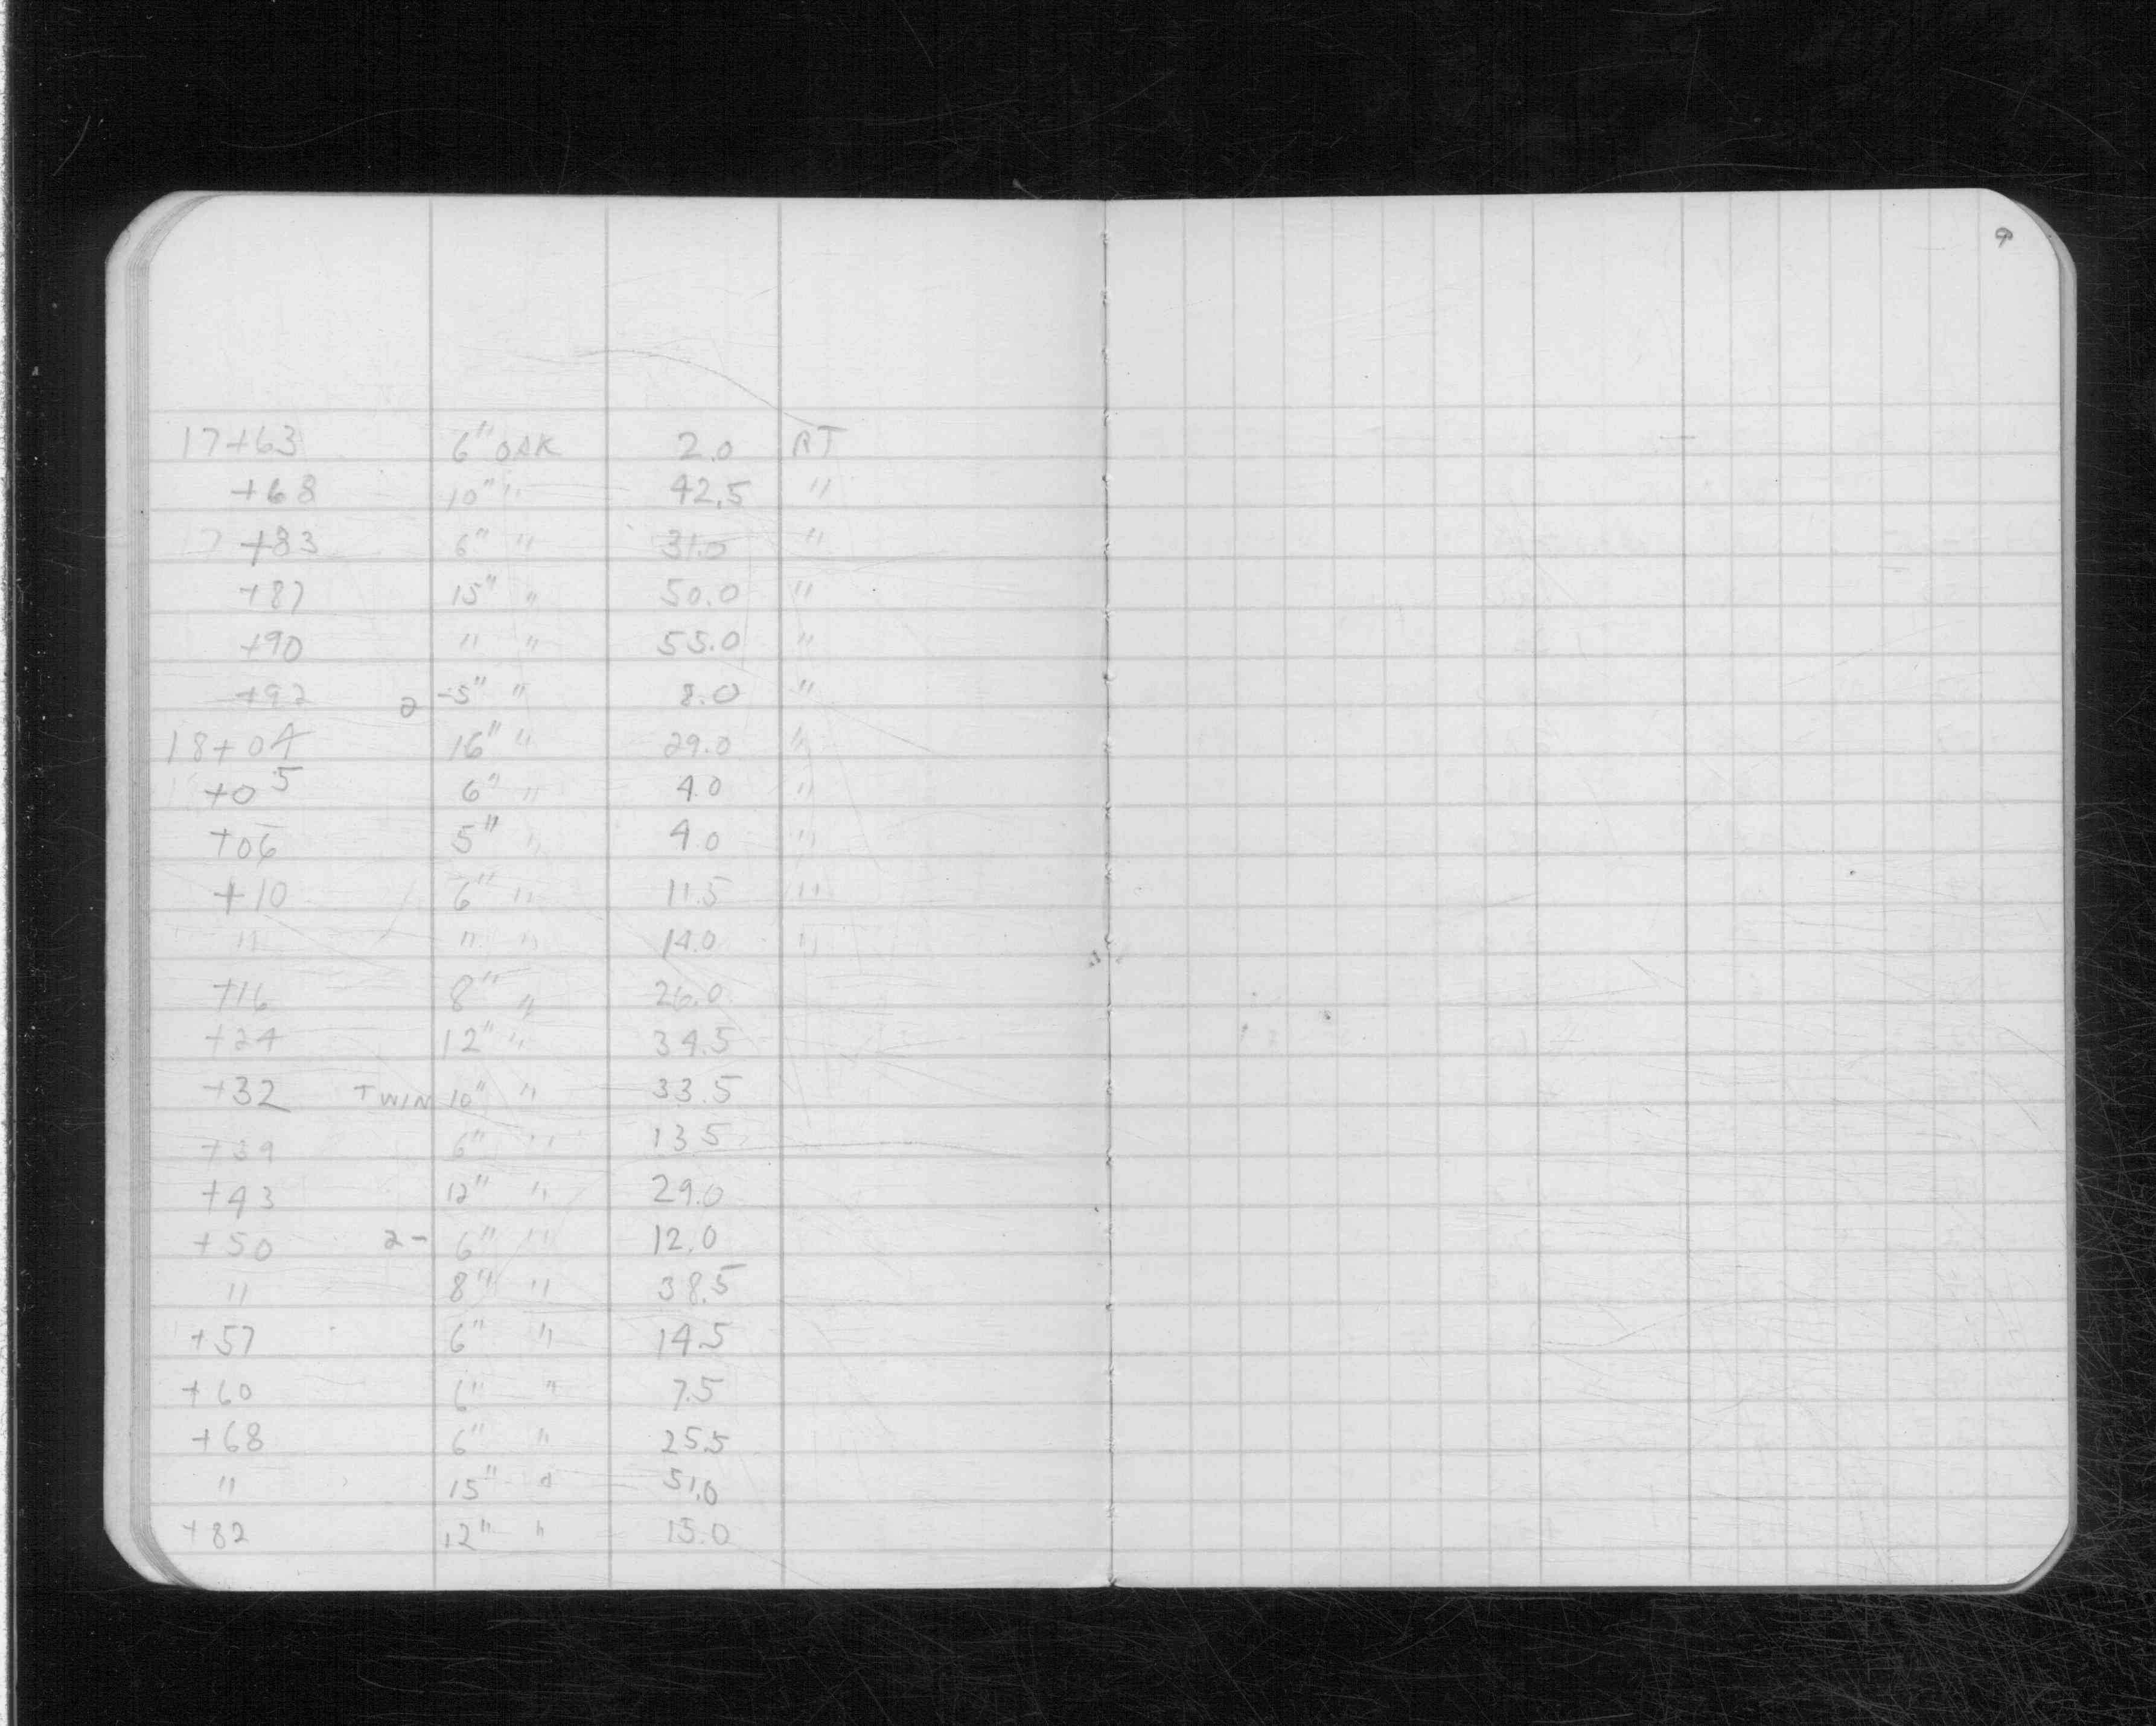 9
17+63 6" OAK 2.0 RT
+68 10" " 42.5 "
17 +83 6" " 31.0 "
+87 15" " 50.0 "
+90 " " 55.0 "
+92 2 -5" " 8.0 "
18+04 16" " 29.0 "
+05 6" " 4.0 "
+06 5" " 4.0 "
+10 6" " 11.5 "
" " " 14.0 "
+16 8" " 26.0
+24 12" " 34.5
+32 TWIN 10" " 33.5
+39 6" " 13.5
+43 12" " 29.0
+50 2- 6" " 12.0
" 8" " 38.5
+57 6" " 14.5
+60 6" " 7.5
+68 6" " 25.5
" 15" " 51.0
+82 12" " 15.0